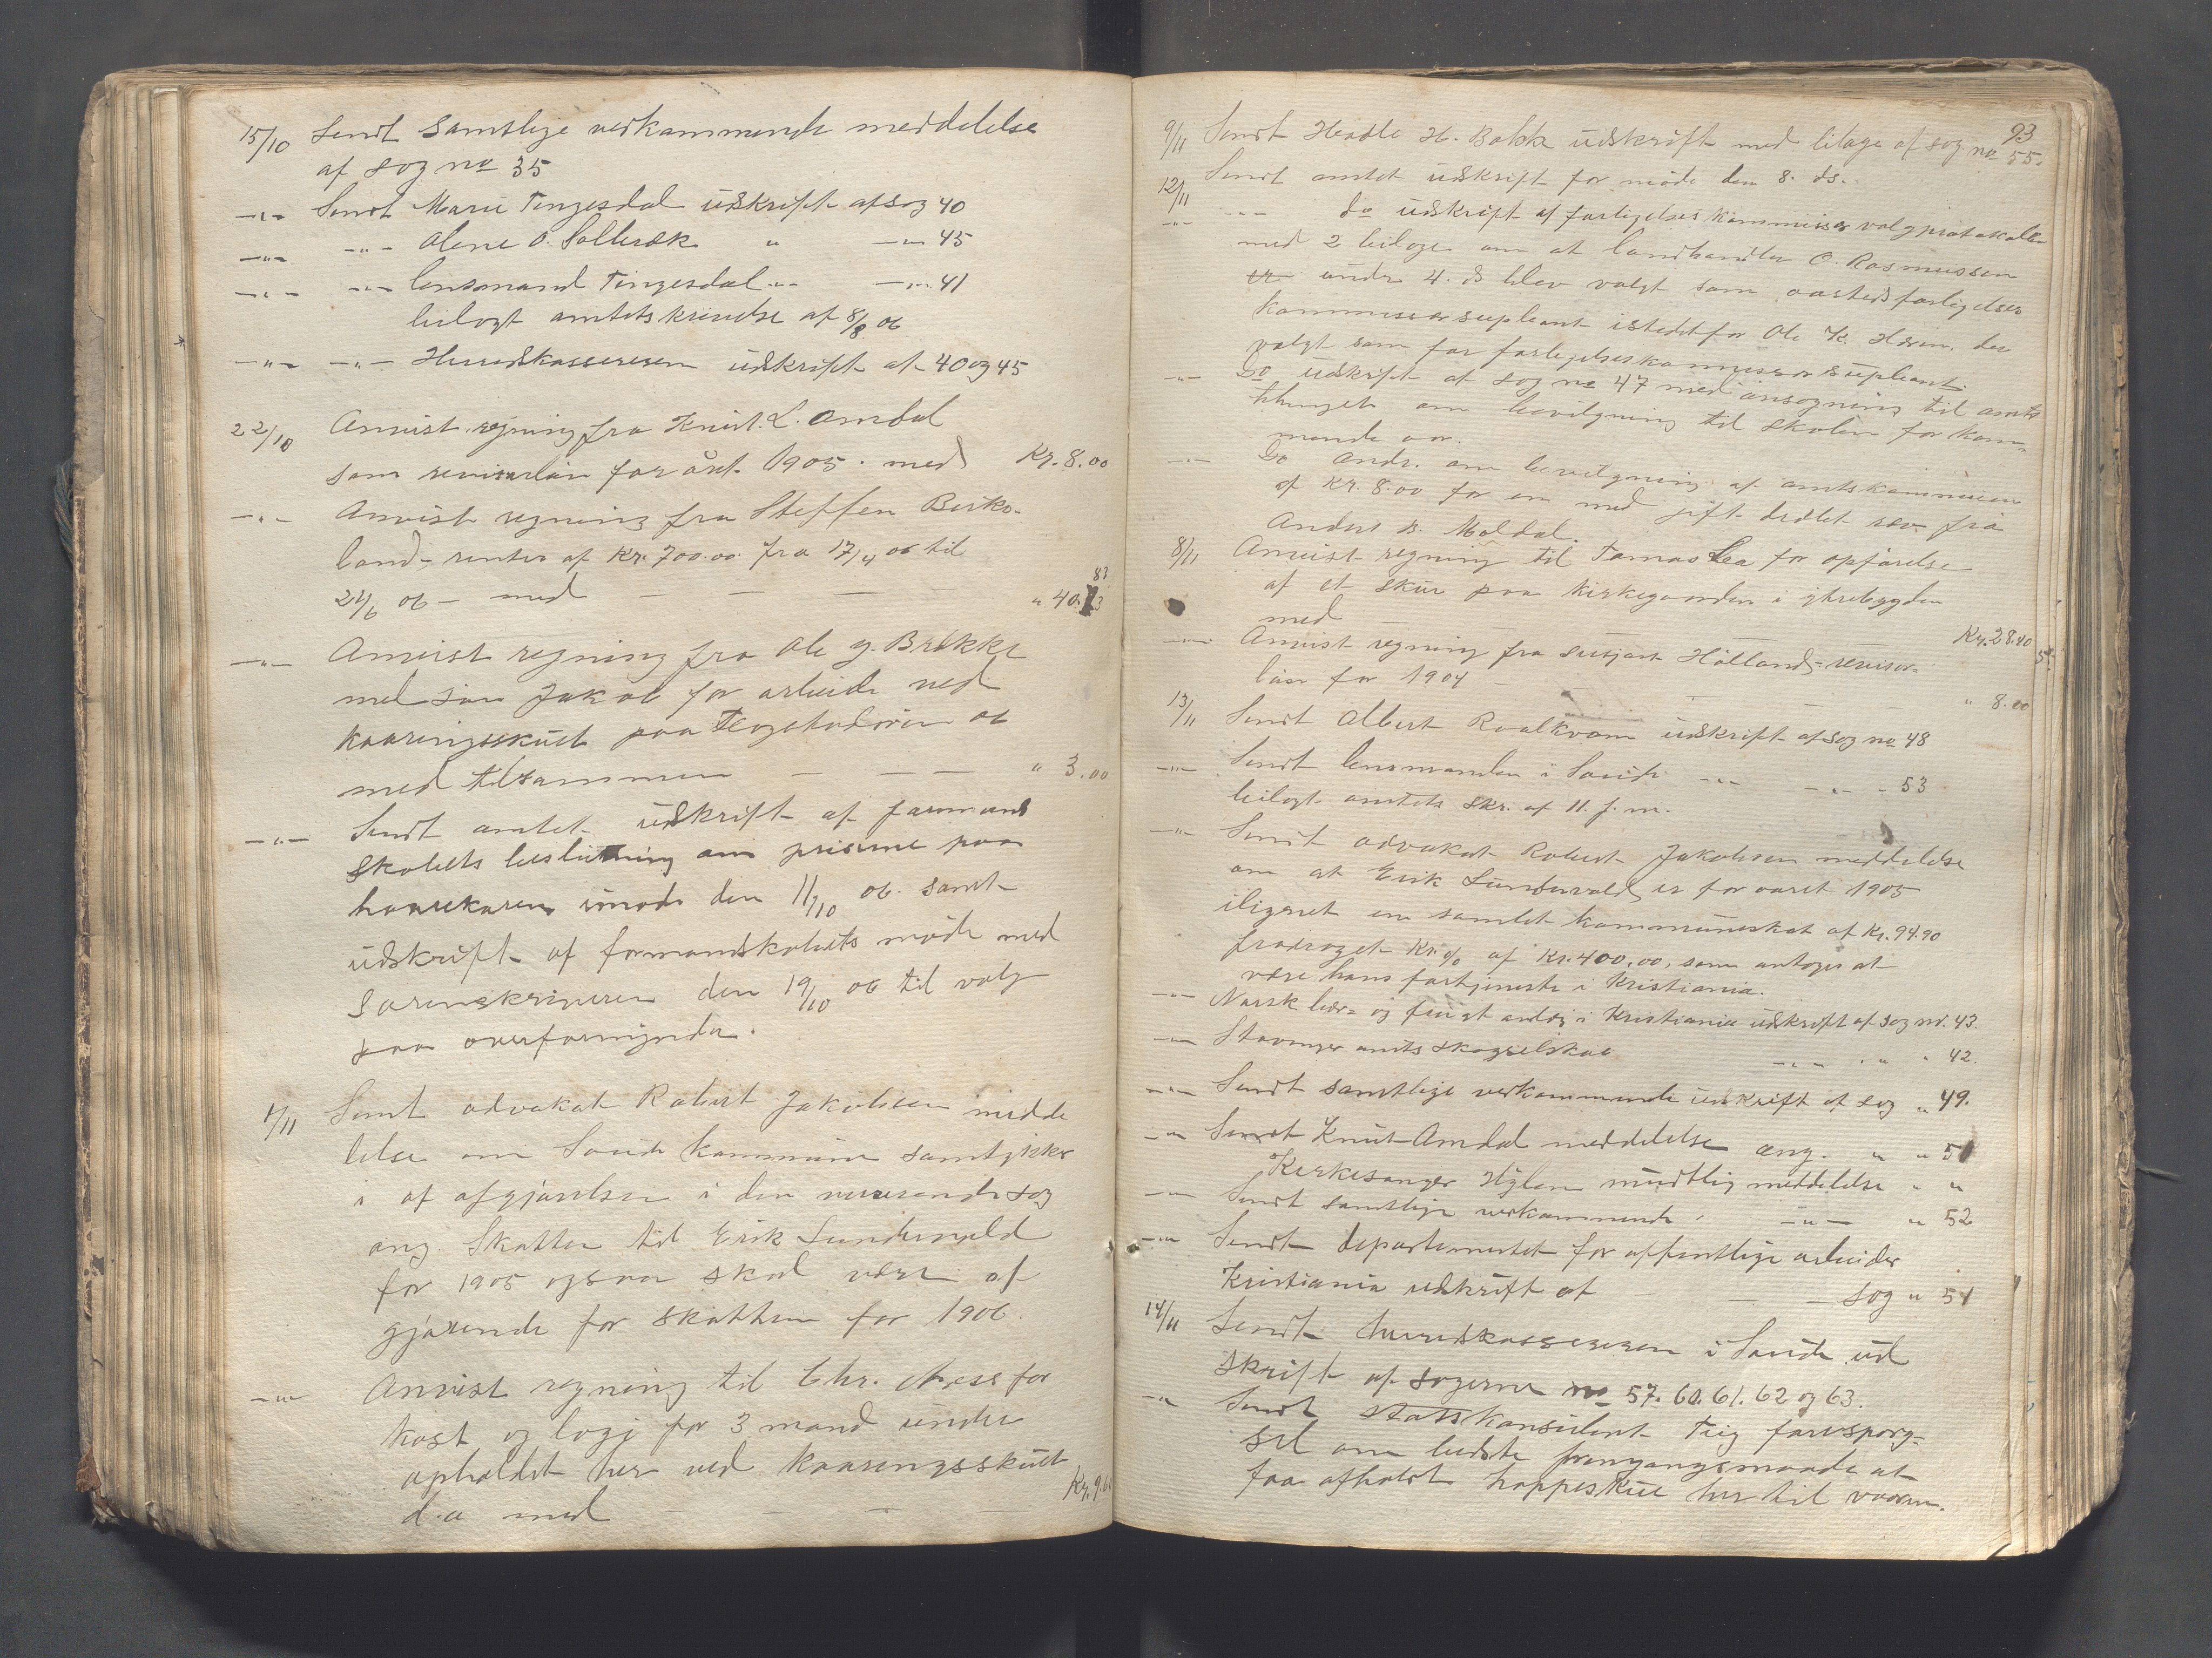 15/10 Sendt samtlige vedkommende meddelelse
af sag no 35
-"- Sendt Marie Tengesdal udskrift af sag 40
-"- -"- Olene O. " -"- 45
-"- -"- lensmand Tengesdal -"- -"- 41
bilagt amtets skrivelse af 8/8 06
-"- -"- Herredskassereren udskrift af 40 og 45
22/10 Anvist regning fra Knut L. Amdal
som revisorløn for året 1905. med Kr. 8.00
-"- Anvist regning fra Steffen Birke-
land, renter af Kr. 700.00 fra 17/4 06 til
21/6 06 - med — — — " 40.83
-"- Anvist regning fra Ole g. Brække
med søn Jakob for arbeide ved
kaaringsskuet paa 06
med tilsammen — — — " 3.00
-"- Sendt amtet udskrift af formand
skabets beslutning om priserne paa
i møde den 11/10 06. samt
udskrift af formandskabets møde med
Sorenskriveren den 19/10 06 til valg
paa overformynder.
1/11 Sendt advokat Robert Jakobsen medde
lelse om Saude kommune samtykker
i at afgjørelsen i den nuværende sag
ang. Skatten til Erik Sundervald
for 1905 ogsaa skal være af
gjørende for skatten for 1906.
-"- Anvist regning til Chr. Næss for
kost og logi for 3 mand under
opholdet her ved kaaringsskuet
d. a med — — Kr. 9.60
93
9/11 Sendt Headle H. Bakke udskrift med bilage af sag no 55.
12/11 Sendt amtet udskrift for møde den 8. ds.
-"- -"- do udskrift af forligelseskommissær valgprotokollen
med 2 bilage om at landhandler O. Rasmussen
under 4. ds blev valgt som aasteds forligelses
kommissær supleant istedetfor Ole K. Høien, der
valgt som for forligelseskommissær supleant.
-"- Do udskrift af sag no 47 med ansøgning til amts
thinget om bevilgning til skolen for kom-
mende aar.
-"- Do andr. om bevilgning af amtskommunen
af Kr. 8.00 for en med gift dræbt ræv fra
Anders B. Moldal.
8/11 Anvist regning til Tomas Lea for opførelse
af et skur paa kirkegaarden i ytrebygden
med — — Kr. 28.40
-"- Anvist regning fra Høiland, revisor-
løn for 1904 — — " 8.00
13/11 Sendt Albert Roalkvam udskrift af sag no 48
-"- Sendt lensmanden i Saude -"- -"- 53
bilagt amtets skr. af 11. f. m.
-"- Sendt advokat Robert Jakobsen meddelelse
om at Erik Sundervald er for aaret 1905
ilignet en samlet kommuneskat af Kr. 94.90
fradraget Kr. % af Kr. 400.00, som antages at
være hans fortjeneste i Kristiania.
-"- Norsk bær- og frugt anlæg i Kristiania udskrift af sag nr. 43.
-"- Stavanger amts skogselskab -"- " " 42.
-"- Sendt samtlige vedkommende udskrift af sag " 49.
-"- Sendt Knut Amdal meddelelse ang. " " 51
Kirkesanger Hylen mundtlig meddelelse " "
-"- Sendt samtlige vedkommende -"- " 52
-"- Sendt departementet for offentlige arbeider
Kristiania udskrift af — — sag " 51
14/11 Sendt herredskassereren i Saude ud
skrift af sagerne no 57. 60. 61. 62 og 63.
-"- Sendt statskonsulent forespørg-
sel om bedste fremgangsmaade at
faa afholdt hoppeskue her til vaaren.